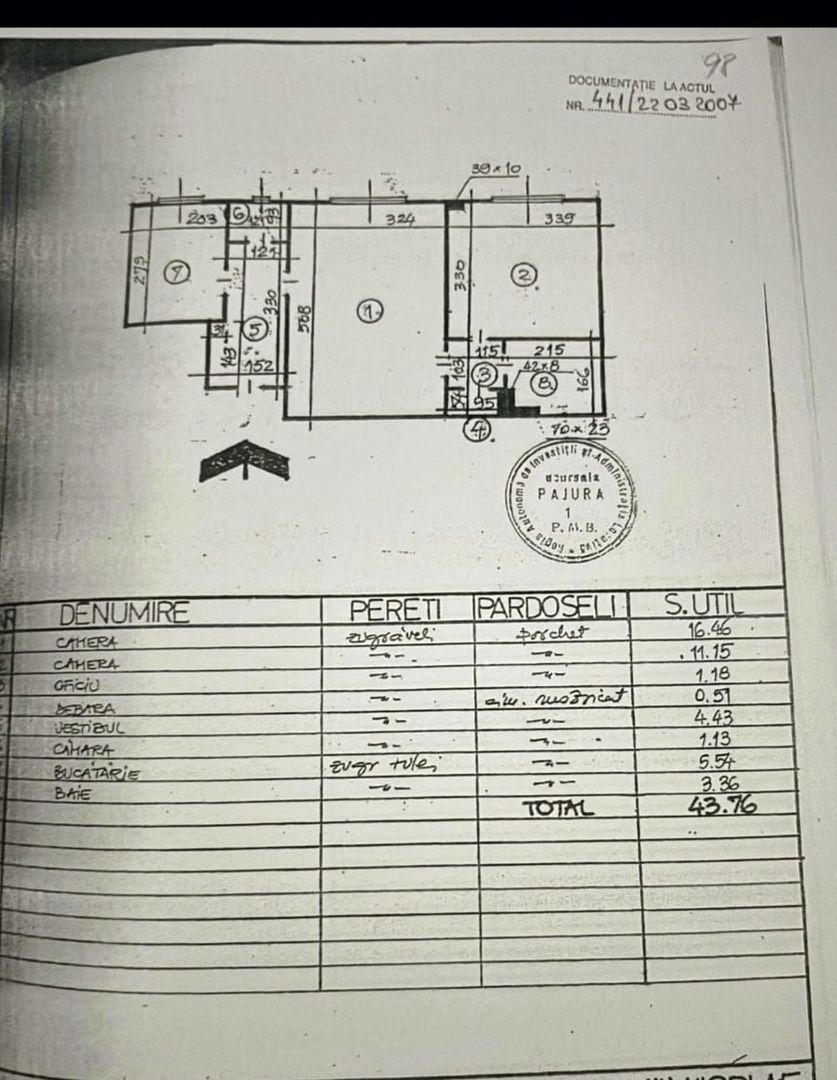 98
DOCUMENTAȚIE LA ACTUL
NR. 441/22 03 2007
39×10
203
6
93
324
339
121
273
7
330
508
1
330
2
31
5
143
152
115
215
103
3
42×8
8
166
54
95
4
70×23
Regia Autonomă de Investiții și Administrație Locativă
sucursala
PAJURA
1
P.M.B.
DENUMIRE PEREȚI PARDOSELI S.UTIL
CAMERA zugrăveli parchet 16.46
CAMERA -"- -"- 11.15
OFICIU -"- -"- 1.18
DEBARA -"- 0.51
VESTIBUL -"- -"- 4.43
CĂMARA -"- -"- 1.13
BUCĂTĂRIE zugr -"- 5.54
BAIE -"- -"- 3.36
TOTAL 43.76